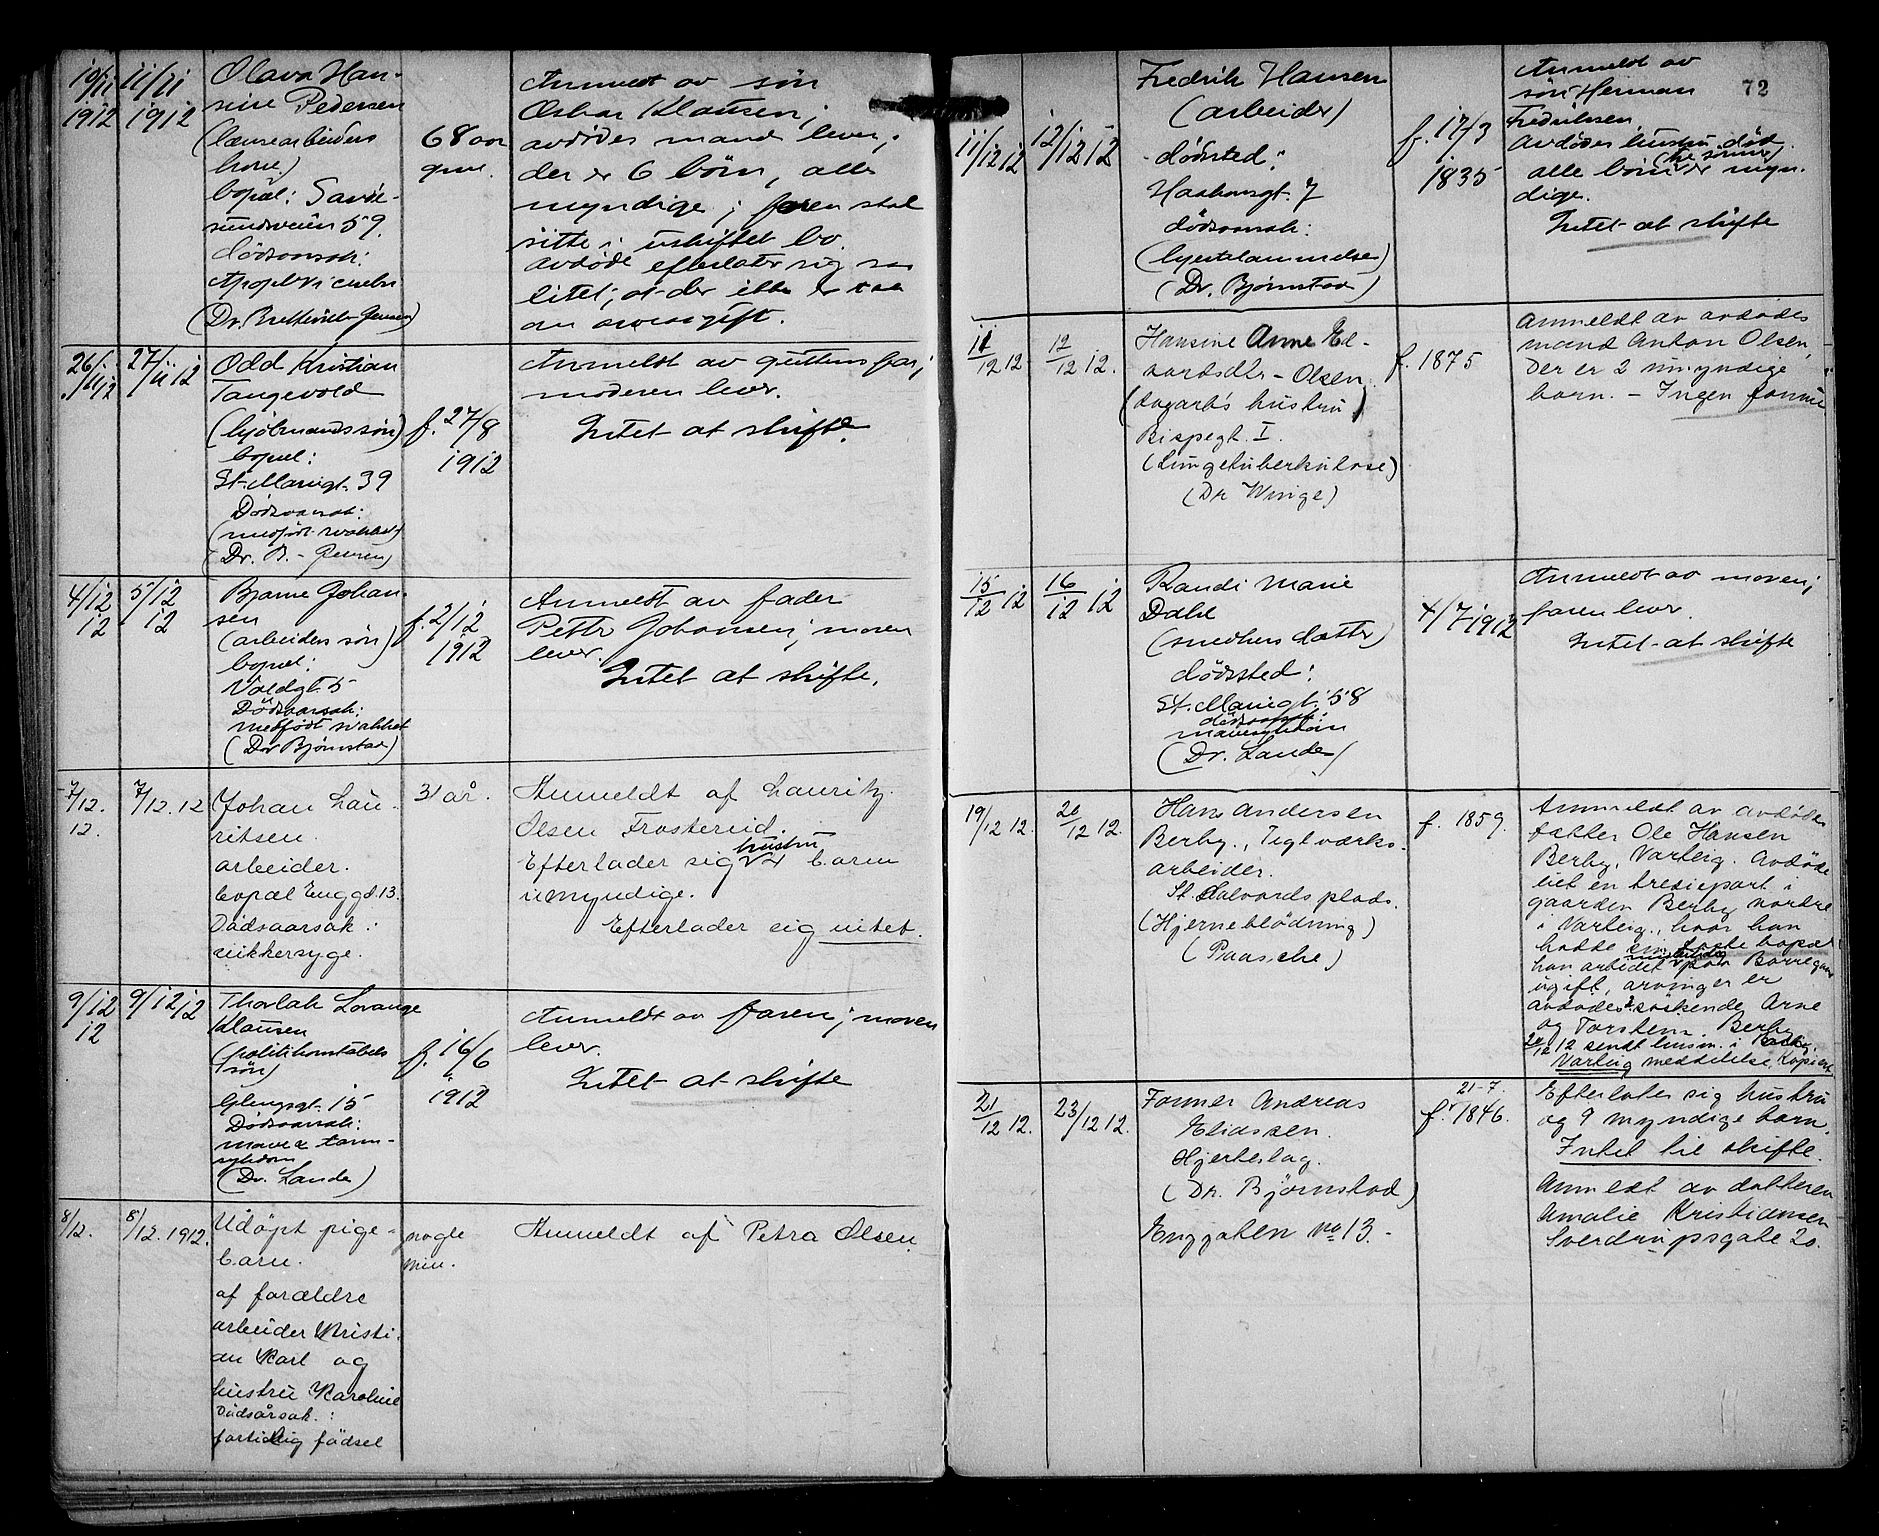 10/11 1912
11/11 1912
Olava Han-
sine Pedersen
(lænsearbeiders
kone)
bopæl: Sandе-
sundsveien 59.
dödsaarsak:
Apoplexi cerebri
(Dr. Brettville-Jensen)
68 aar
gml.
Anmeldt av søn
Oskar Klausen;
avdödes mand lever;
der er 6 börn, alle
myndige; faren skal
sitte i uskiftet bo.
avdöde efterlater sig saa
litet, at der ikke er
an arveavgift.
26/11 12
27/11 12
Odd Kristian
Tangevold
(kjöbmands sön)
bopæl:
St. Mariegt. 39
Dödsaarsak:
(medfödt svakhet)
(Dr. B.-Jensen)
f. 27/8
1912
Anmeldt av guttens far;
moderen lever.
Intet at skifte.
4/12
12
5/12
12
Bjarne Johan-
sen
(arbeiders sön)
bopæl:
Voldgt. 5
Dödsaarsak:
medfödt svakhet
(Dr Bjørnstad)
f. 2/12
1912
Anmeldt av fader
Petter Johansen; moren
lever.
Intet at skifte.
7/12.
12.
7/12. 12
Johan Lau-
ritsen.
arbeider.
bopæl Enggd. 13.
Dødsaarsak:
sukkersyge.
31 år.
Anmeldt af Lauritz
Olsen Frosterud
hustru
Efterlader sig barn
umyndige.
Efterlader sig intet.
9/12
12
9/12 12
Thorlak Lorange
Klausen
(politikonstabels
sön)
Glengsgt. 15
Dödsaarsak:
mave & tarm-
sykdom
(Dr. Lande)
f. 16/6
1912
Anmeldt av faren; moren
lever.
Intet at skifte
8/12.
8/12. 1912.
Udöpt pige-
barn.
af forældre
arbeider Kristi-
an Karl og
hustru Karoline
Dødsårsak:
fortidlig födsel
nogle
min.
Anmeldt af Petra Olsen.
72
11/12 12
12/12 12
Fredrik Hansen
(arbeider)
dödssted:
Haakonsgt. 7
dödsaarsak:
(hjertelammelse)
(Dr. Bjørnstad)
f. 17/3
1835
Anmeldt av
søn Herman
Fredriksen,
avdödes hustru död.
alle børn er myn-
dige.
Intet at skifte
11/12 12
12/12 12.
Hansine Anne Ed-
vardsdtr - Olsen
(dagarb's hustru)
Bispegt. I.
(Lungetuberkulose)
(Dr Winge)
f. 1875
Anmeldt av avdödes
mand Anton Olsen,
Der er 2 umyndige
barn. - Ingen formue
15/12 12
16/12 12
Randi Marie
Dahl
(snedkers datter)
dödssted:
St. Mariegt. 58
dödsaarsak:
mavesykdom
(Dr. Lande)
4/7 1912
Anmeldt av moren;
faren lever.
Intet at skifte
19/12 12.
20/12 12.
Hans Andersen
Berby., Teglværks-
arbeider.
St. Halvards plads.
(Hjerneblödning)
(Paasche)
f. 1859.
Anmeldt av avdödes
fatter Ole Hansen
Berby, Varteig. Avdöde
eiet en trediepart i
gaarden Berby nordre
i Varteig., hvor han
hadde sin faste bopæl
midlertidig
han arbeidet paa Borregaard
ugift, arvinger er
avdödes 2 söskende Arne
og Torsten. Berby
20/12 12 sendt lensm. i
Varteig meddelelse,
21/12 12.
23/12 12.
Former Andreas
Eliassen.
Hjerteslag.
(Dr. Björnstad)
Enggaten no 13.-
21-7.
f. 1846.
Efterlater sig hustru
og 9 myndige barn.
Intet til skifte.
Anmeldt av datteren
Amalie Kristiansen
Sverdrupsgate 20.